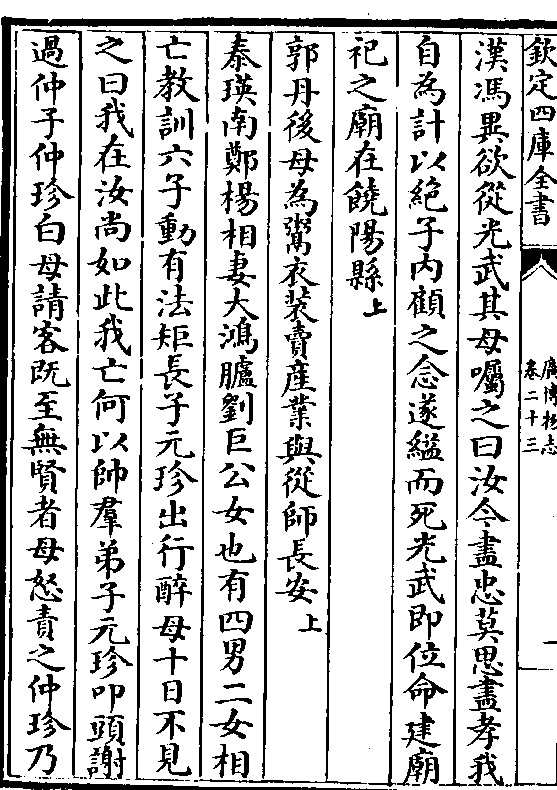 欽定四庫全書
廣博物志
卷二十三
一
漢馮異欲從光武其母囑之曰汝今盡忠莫思盡孝我
自為計以絕子內顧之念遂縊而死光武即位命建廟
祀之廟在饒陽縣上
郭丹後母為鬻衣裝賣産業與從師長安上
泰瑛南鄭楊相妻大鴻臚劉巨公女也有四男二女相
亡教訓六子動有法矩長子元珍出行醉母十日不見
之曰我在汝尚如此我亡何以帥羣弟子元珍叩頭謝
過仲子仲珍白母請客既至無賢者母怒責之仲珍乃